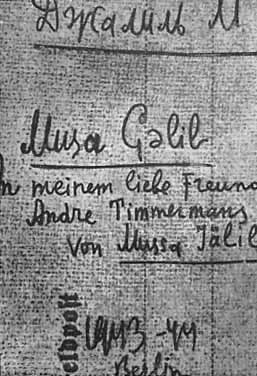 Джалиль М
Musa Gəlil
An meinem liebe Freund
Andre Timmermans
von Mussa Jälil
eldpost
1943-44
Berlin